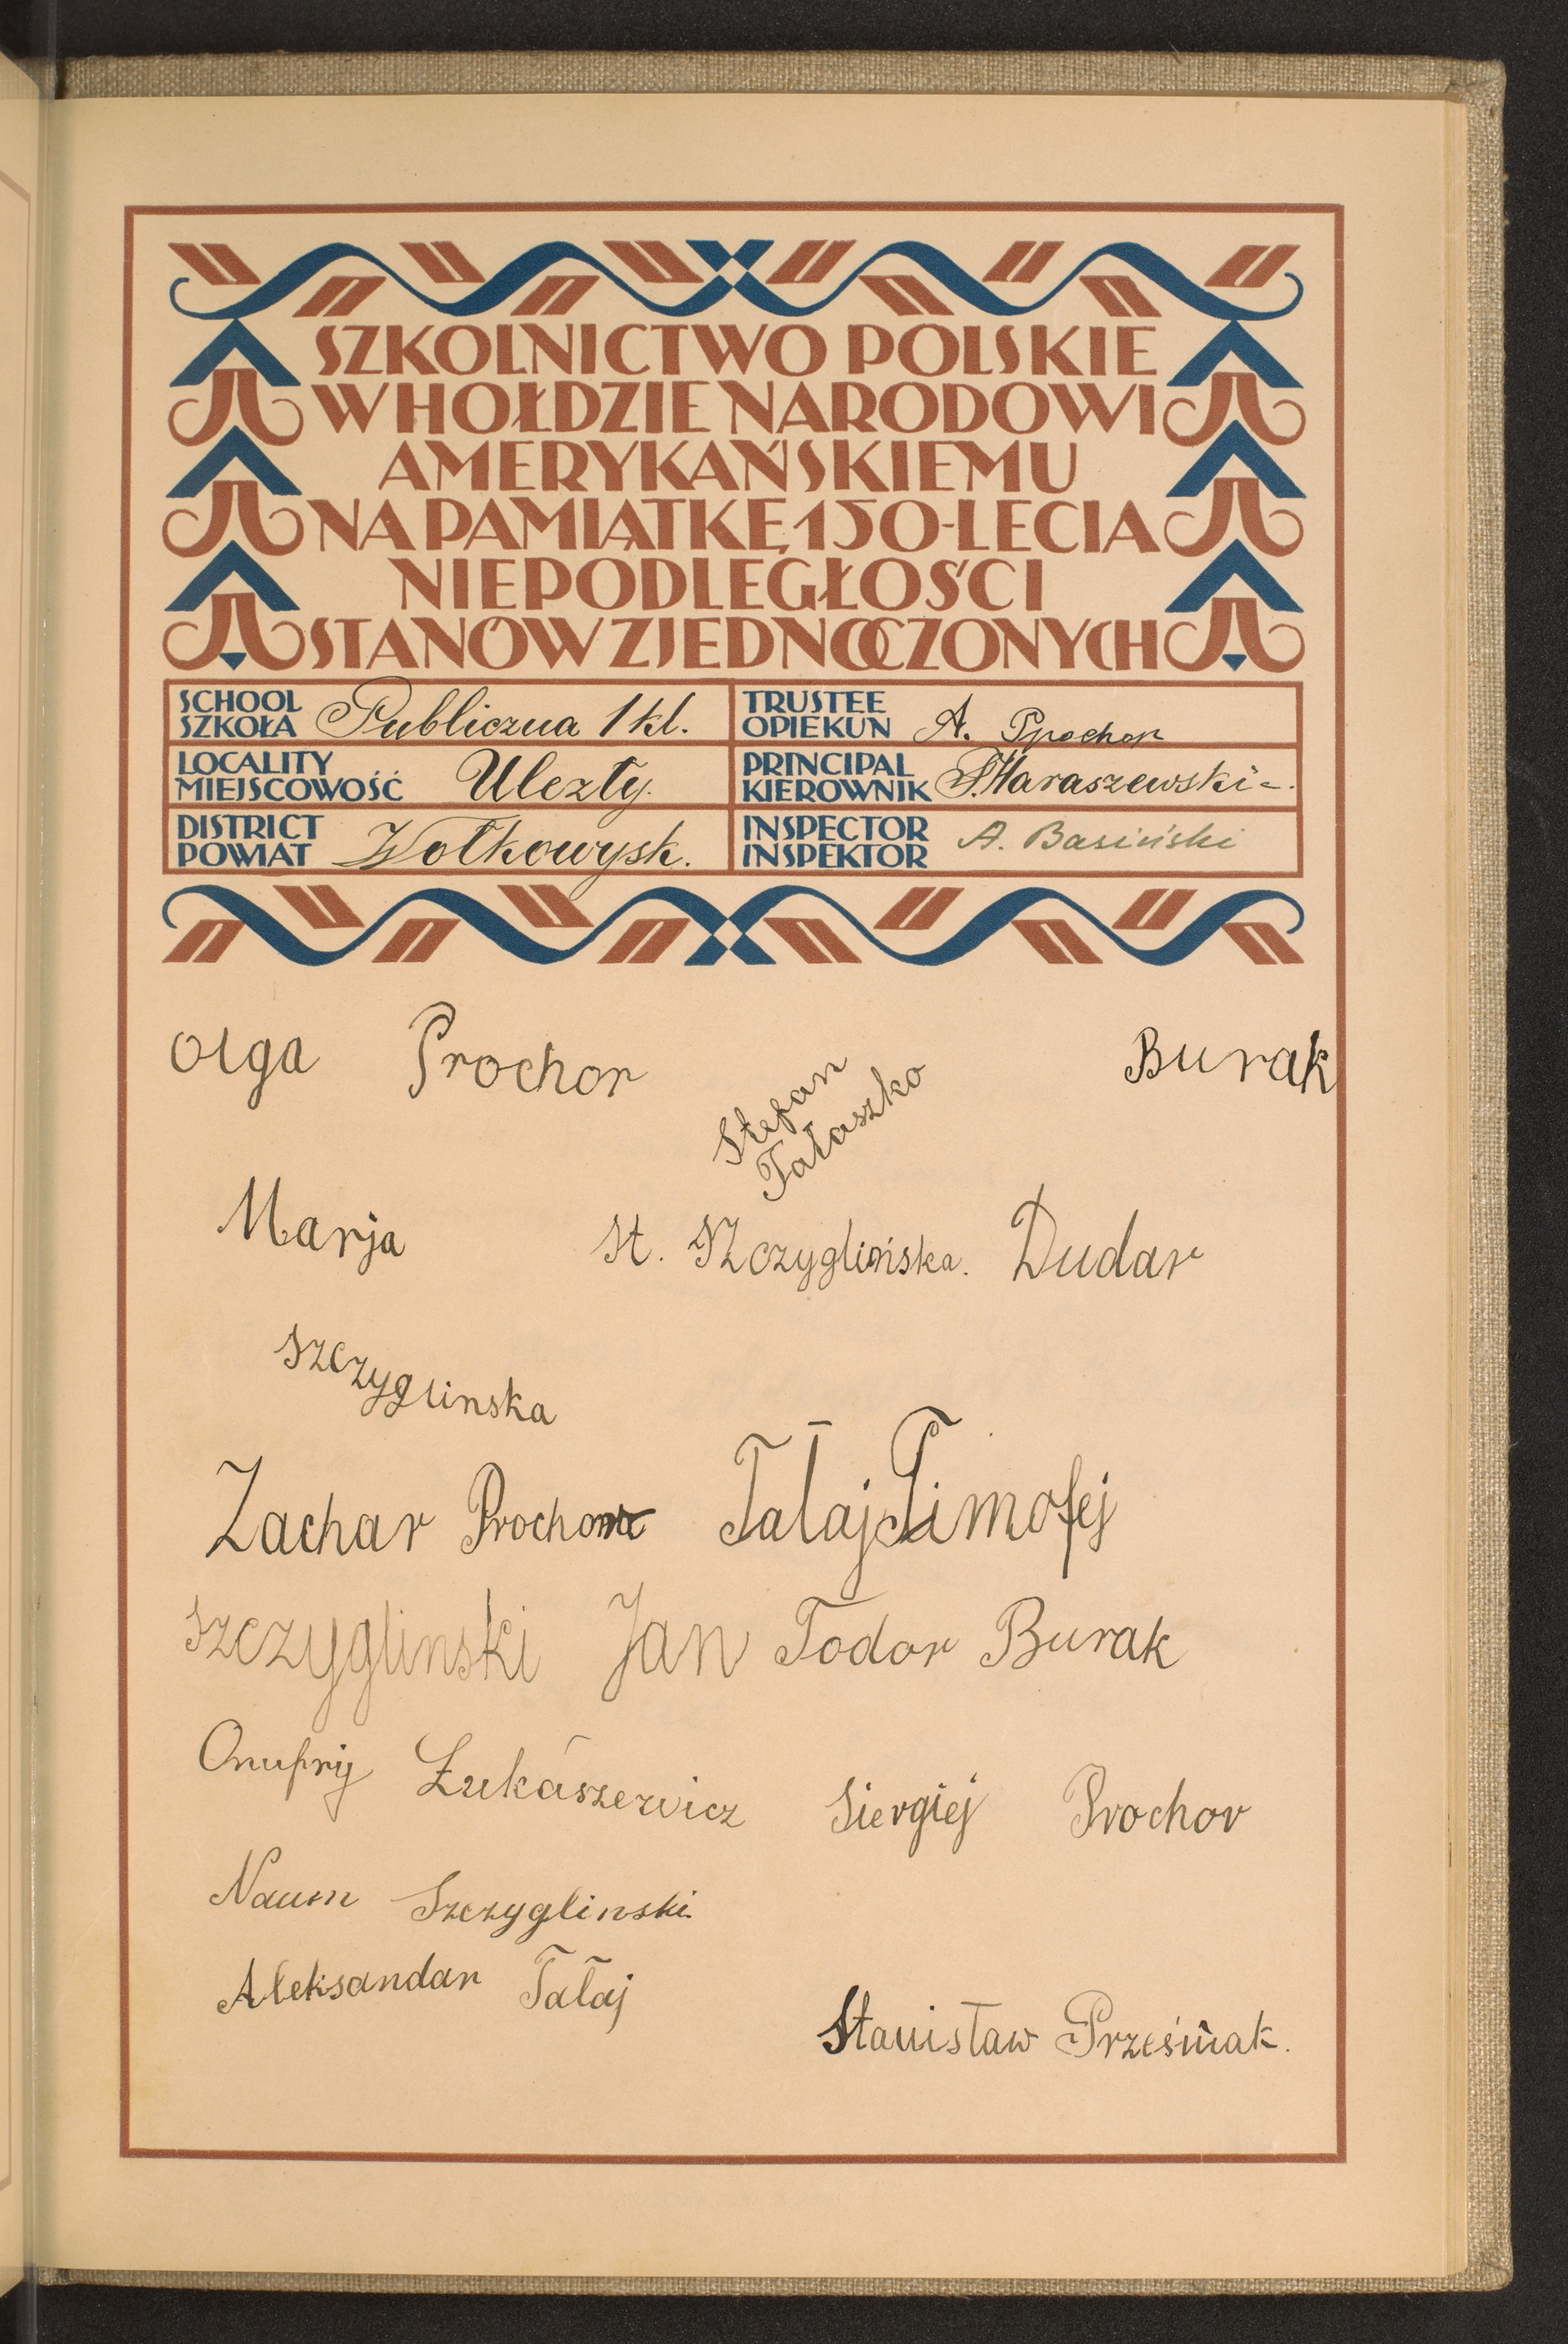 SZKOLNICTWO POLSKIE
W HOŁDZIE NARODOWI
AMERYKAŃSKIEMU
NA PAMIĄTKĘ 150-LECIA
NIEPODLEGŁOŚCI
STANÓW ZJEDNOCZONYCH
SCHOOL
SZKOŁA Publiczna 1 kl.
TRUSTEE
OPIEKUN A. Prochor
LOCALITY
MIEJSCOWOŚĆ Ulezły.
PRINCIPAL
KIEROWNIK Haraszewski
DISTRICT
POWIAT Wołkowysk.
INSPECTOR
INSPEKTOR A. Basiński
Olga Prochor
Stefan
Tałaszko
Burak
Marja
St. Szczyglińska. Dudar
Szczyglinska
Zachar Prochor Tałaj Timofej
Szczyglinski Jan Todor Burak
Onufrij Łukaszewicz Siergiej Prochor
Naum Szczyglinski
Aleksandar Tałaj
Stanisław